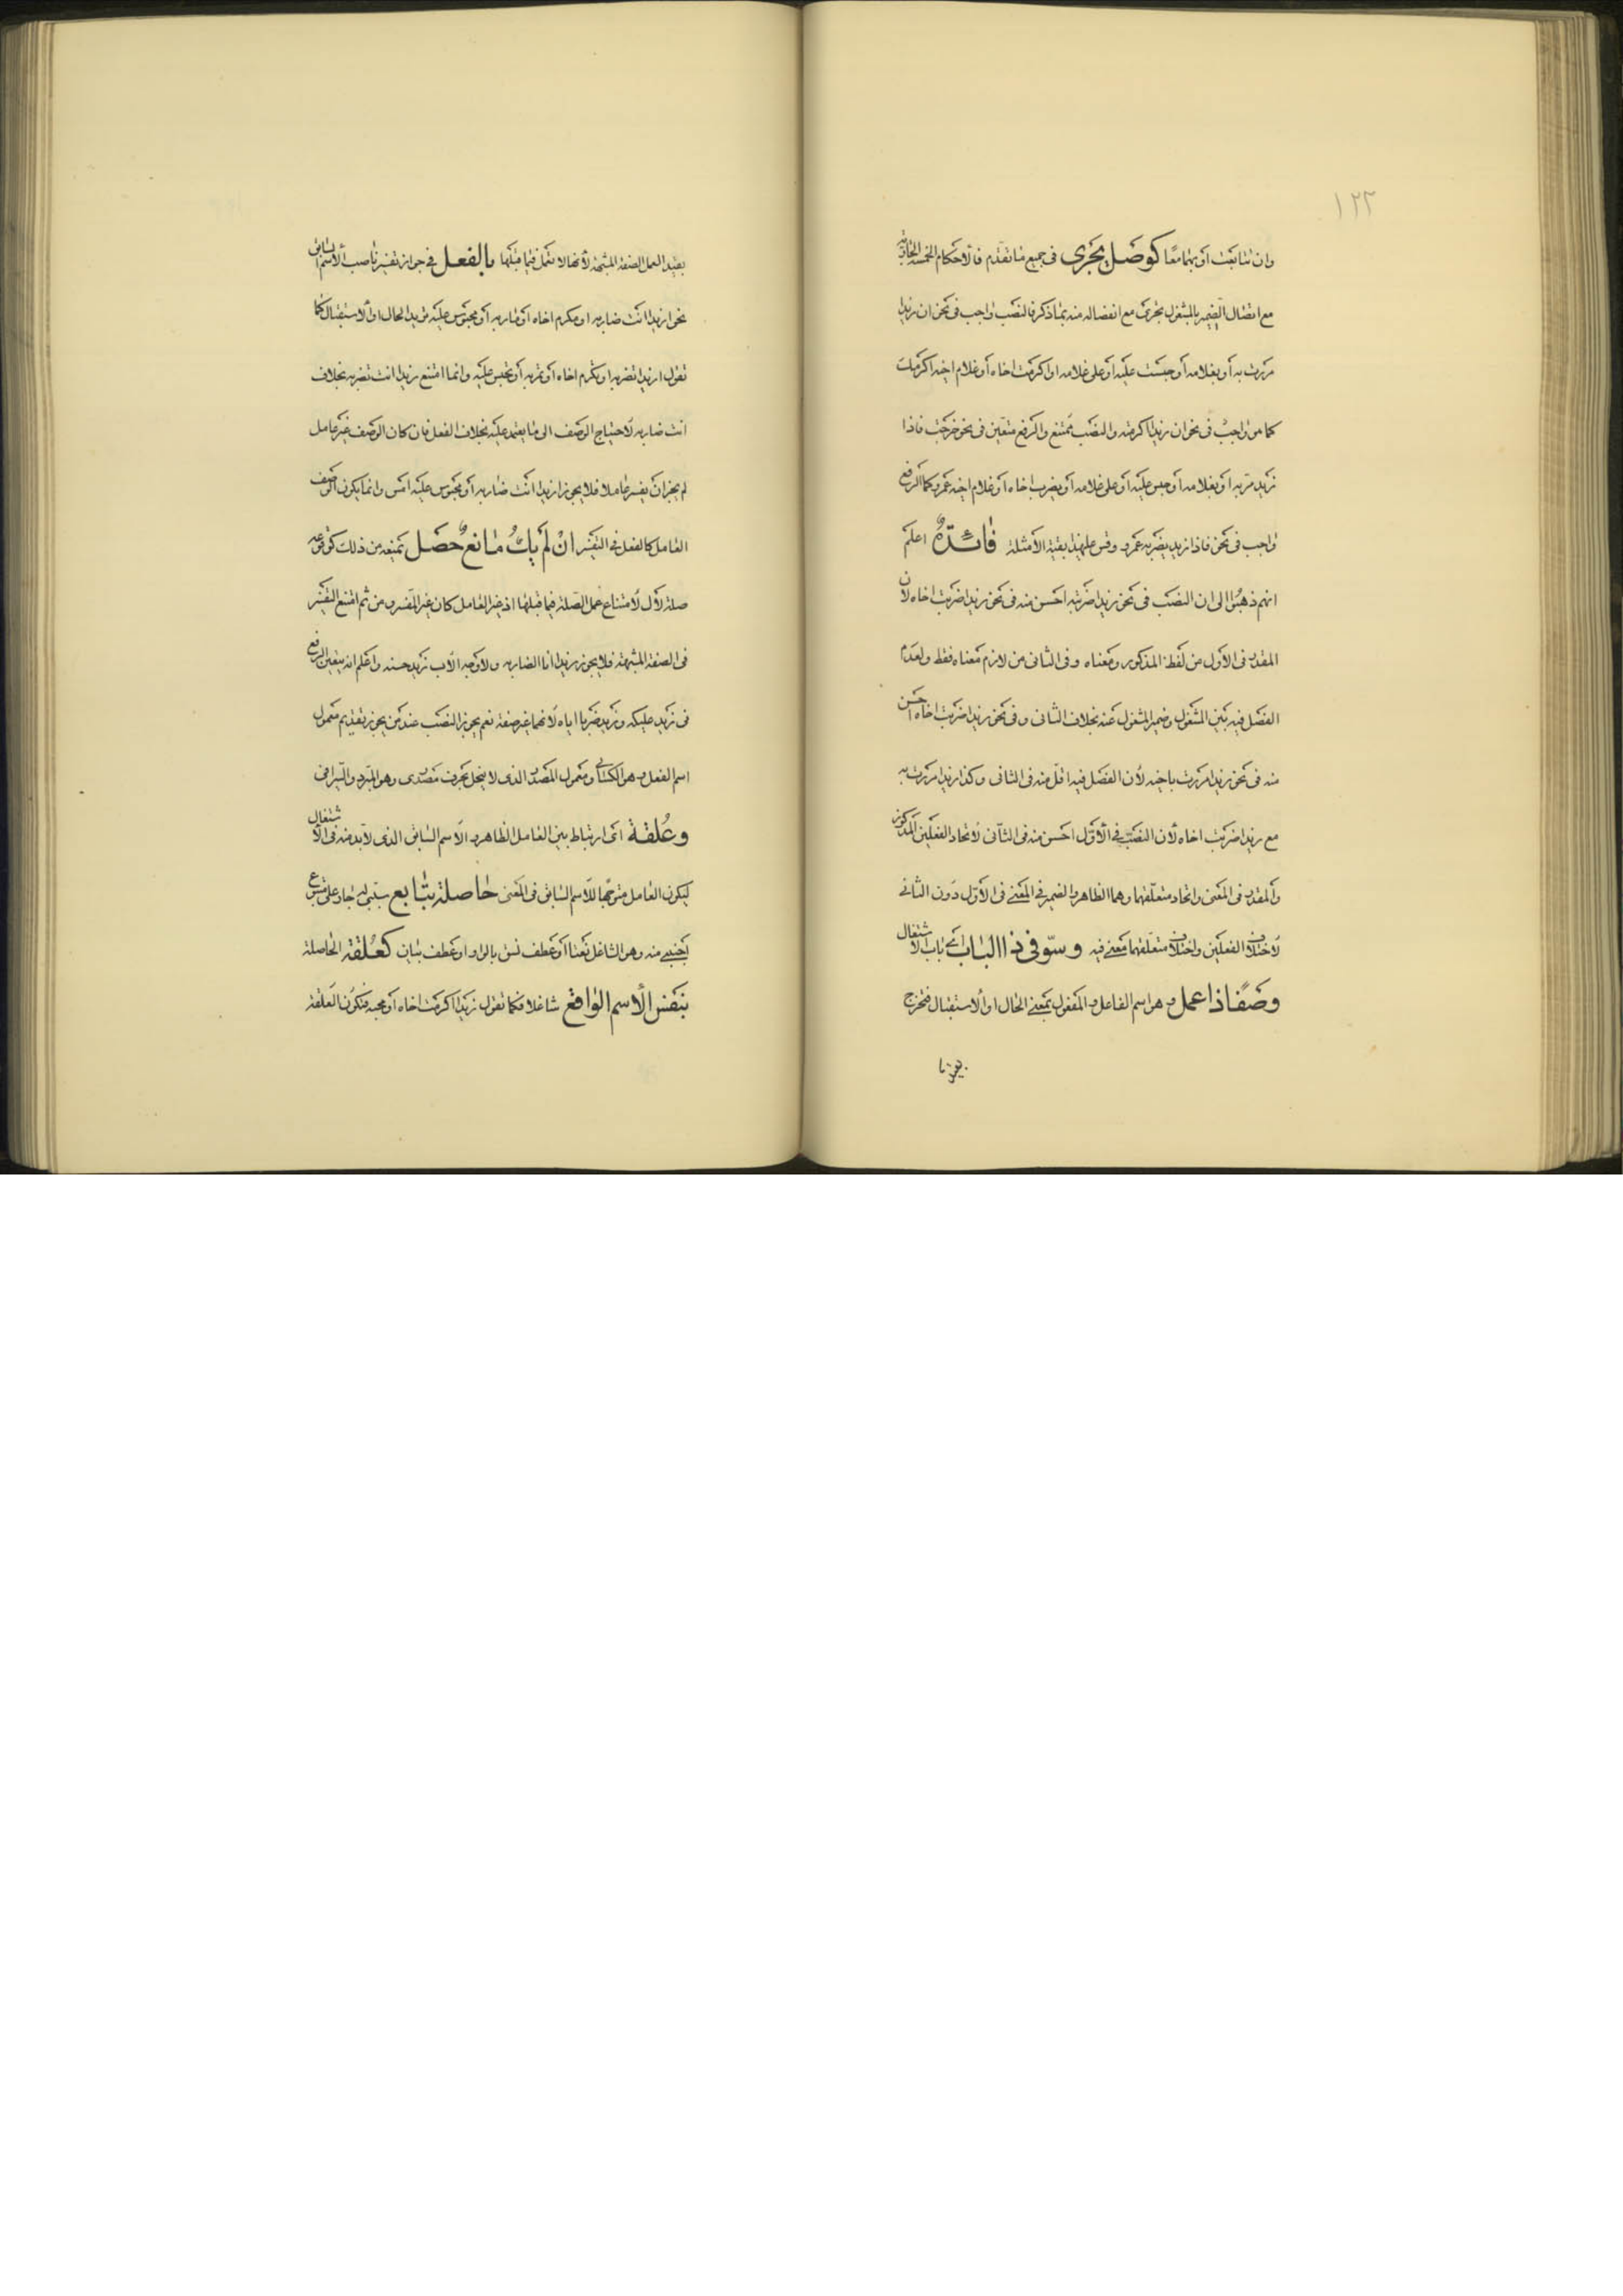 ١٢٢
وان تتابعت او بهما معًا كوصل يجرى فى جميع ما تقدم فالاحكام الخمسة الجارية
مع اتصال الضمير بالمشغول تجرى مع انفصاله منه بما ذكر فالنصب واجب فى نحو ان زيدا
مررت به أو بغلامه أو حبست عليه أو على غلامه او اكرمت اخاه أو غلام اخيه اكرمك
كما هو واجب فى نحو ان زيدا اكرمته والنصب ممتنع والرفع متعين فى نحو خرجت فاذا
زيد مر به أو بغلامه أو حبس عليه أو على غلامه أو يضرب اخاه أو غلام اخيه عمرو كما الرفع
واجب فى نحو فاذا زيد يضربه عمرو وقس على هذا بقية الأمثلة فائدة اعلم
انهم ذهبوا الى ان النصب فى نحو زيدا ضربته احسن منه فى نحو زيدا ضربت اخاه لأن
المقدر فى الأول من لفظ المذكور ومعناه وفى الثانى من لازم معناه فقط ولعدم
الفصل فيه بين المشغول وضمير المشغول عنه بخلاف الثانى وفى نحو زيدا ضربت اخاه احسن
منه فى نحو زيدا مررت باخيه لأن الفصل فيه اقل منه فى الثانى وكذا زيدا مررت به
مع زيدا ضربت اخاه لأن النصب فى الأول احسن منه فى الثانى لاتحاد الفعلين المذكور
والمقدر فى المعنى واتحاد متعلقهما وهما الظاهر والضمير فى المعنى فى الأول دون الثانى
لاختلاف الفعلين واختلاف متعلقهما معنى فيه وسوّ فى ذا الباب اى باب الاشتغال
وصفًا ذا عمل وهو اسم الفاعل والمفعول بمعنى الحال او الاستقبال فخرج
بقيد
بقيد العمل الصفة المشبهة لأنها لا تعمل فيما قبلها بالفعل فى جواز تفسير ناصب الاسم السابق
نحو ازيدا انت ضاربه او مكرم اخاه أو مار به أو محبوس عليه تريد الحال او الاستقبال كما
تقول ازيدا تضربه او تكرم اخاه أو تمر به أو تحبس عليه وانما امتنع زيدا انت تضربه بخلاف
انت ضاربه لاحتياج الوصف الى ما يعتمد عليه بخلاف الفعل فان كان الوصف غير عامل
لم يجز أن يفسر عاملا فلا يجوز ازيدا انت ضاربه أو محبوس عليه امس وانما يكون الوصف
العامل كالفعل فى التفسير ان لم يك مانع حصل يمنعه من ذلك كوقوعه
صلة لأل لامتناع عمل الصلة فيما قبلها اذ غير العامل كان غير المفسر ومن ثم امتنع التفسير
فى الصفة المشبهة فلا يجوز زيدا انا الضاربه ولا وجه الأب زيد حسنه واعلم انه يتعين الرفع
فى زيد عليكه وزيد ضربا اياه لأنهما غير صفة نعم يجوز النصب عند من يجوز تقديم معمول
اسم الفعل وهو الكسائى ومعمول المصدر الذى لا ينحل بحرف مصدرى وهو المبرد والسيرافى
وعُلقة اى ارتباط بين العامل الظاهر والاسم السابق الذى لا بد منه فى الاشتغال
ليكون العامل متوجها للاسم السابق فى المعنى حاصلة بتابع سببى له جار على متبوع
اجنبى منه وهو الشاغل نعتا أو عطف نسق بالواو او عطف بيان كعُلقة الحاصلة
بنفس الاسم الواقع شاغلا فكما تقول زيدا اكرمت اخاه أو محبه فتكون العلقة